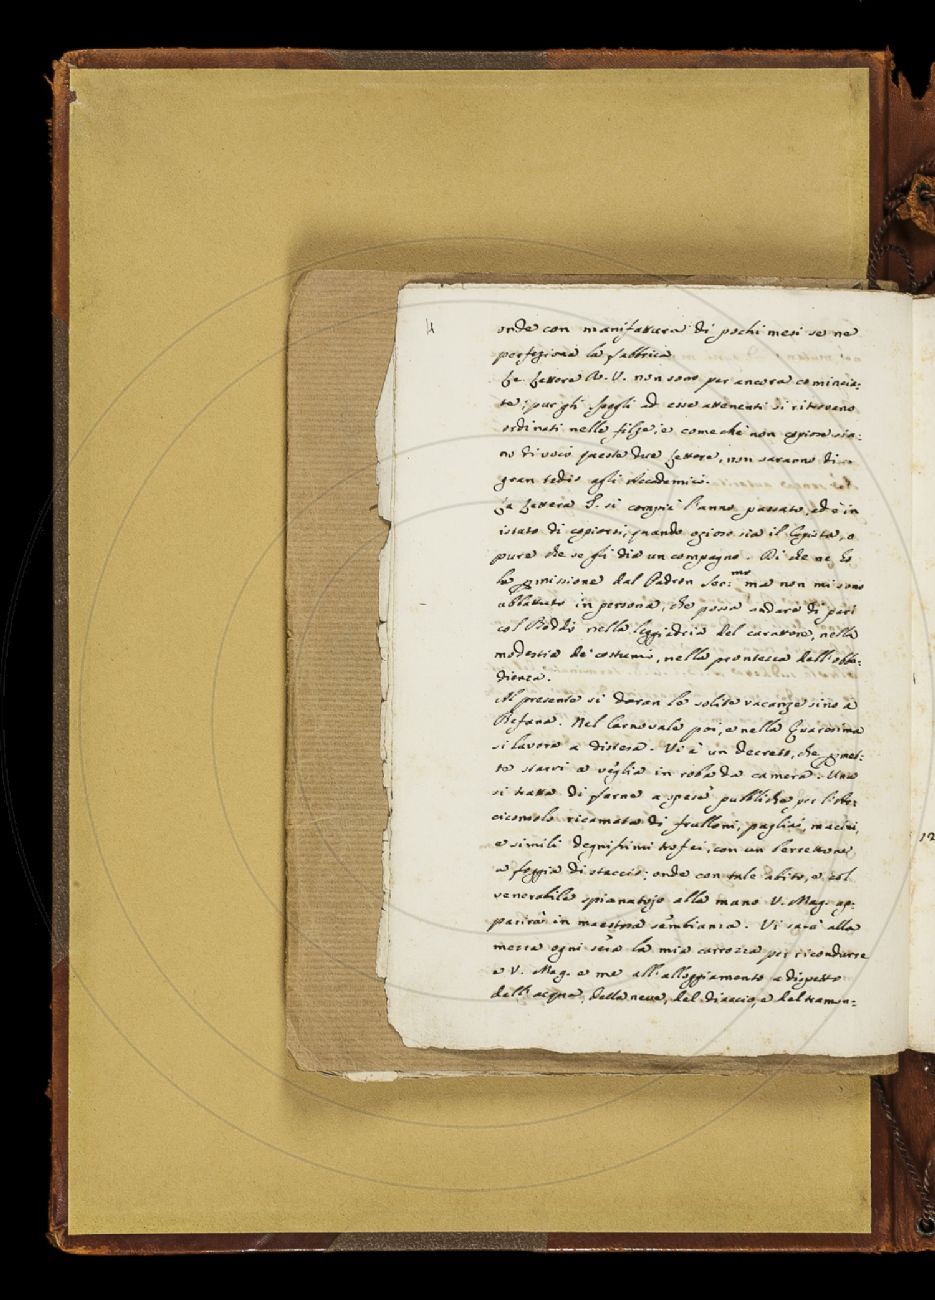 4
onde con manifattura di pochi mesi se ne
perfeziona la fabbrica
Le Lettere R. V. non sono per ancora comincia:
te; pur gli spogli ad esse attenenti si ritrovano
ordinati nelle filze; e come che non copiose sia:
no di voci queste due Lettere, non saranno di
gran tedio agli Accademici.
La Lettera S. si compiè l'anno passato, ed è in
istato di copiarsi, quando ozioso sia il Copista, o
pure che se gli dia un compagno. Di che ne ho
la pmissione dal Padron Ser:mo ma non mi sono
abbattuto in persona, che possa andare di pari
col Boddi nella leggiadria del carattere, nella
modestia de' costumi, nella prontezza dell'obbe:
dienza.
Al presente si daran le solite vacanze sino a
Befana. Nel Carnovale poi, e nella Quaresima
si lavora a distesa. Vi è un decreto, che pmet:
te starvi a veglia in roba da camera. Una
si tratta di farne a spese pubbliche per l'Ar:
ciconsolo ricamata di frulloni, paglioli, macini,
e simili degnissimi trofei; con un berrettone
a foggia di staccio; onde con tale abito, e col
venerabile spianatojo alla mano V. Mag. ap:
parirà in maestosa sembianza. Vi sarà alla
messa ogni sera la mia carrozza per ricondurre
e V. Mag. e me all'alloggiamento a dispetto
dell'acqua, della neve, del diaccio, e del tramon:
12